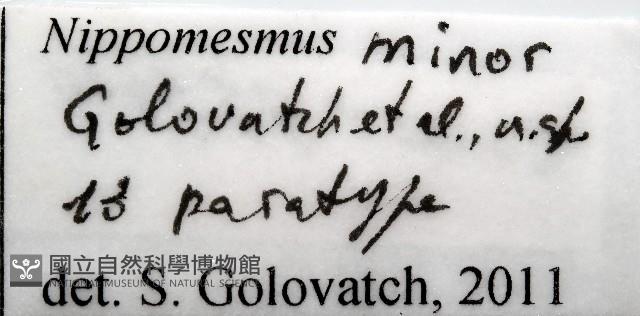 Nippomesmus minor
Golovatch et al., n.sp.
1♂ paratype
國立自然科學博物館
NATIONAL MUSEUM OF NATURAL SCIENCE
det. S. Golovatch, 2011